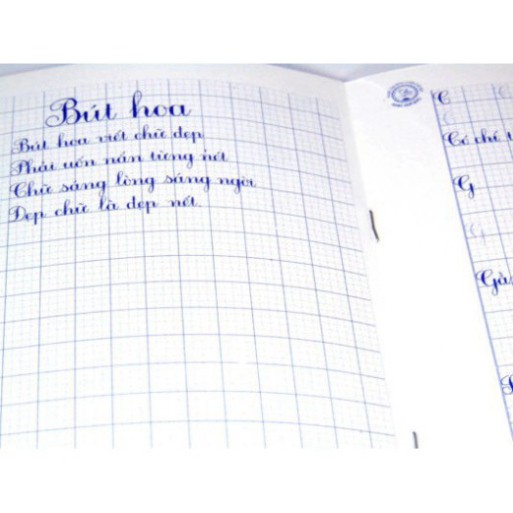 Bút hoa
Bút hoa viết chữ đẹp
Phải uốn nắn từng nét
Chữ sáng lòng sáng ngời
Đẹp chữ là đẹp nết.
C
C
Có chí
G
G